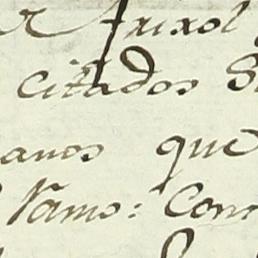 frixol
citados S
anos que
Ramo: Com